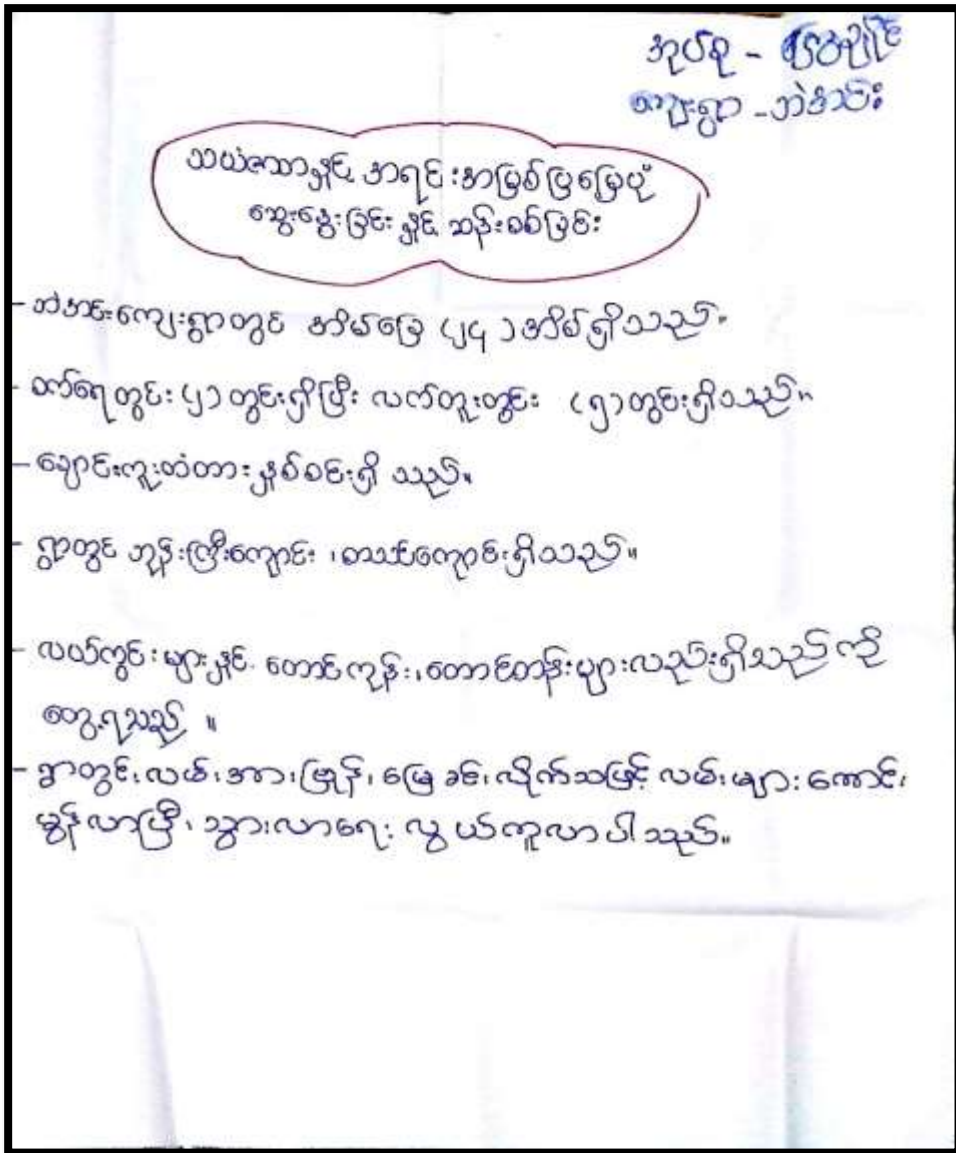 အုပ်စု -
ကျေးရွာ - ဘဲအင်း
သယံဇာတနှင့် အရင်းအမြစ်ပြမြေပုံ
ဆွေးနွေးခြင်းနှင့် ဆန်းစစ်ခြင်း
- ဘဲအင်းကျေးရွာတွင် အိမ်ခြေ (၂၄) အိမ်ရှိသည်။
- စက်ရေတွင်း (၂) တွင်းရှိပြီး လက်တူးတွင်း (၅) တွင်းရှိသည်။
- ချောင်းကူးတံတား နှစ်စင်းရှိသည်။
- ရွာတွင် ဘုန်းကြီးကျောင်း၊ စာသင်ကျောင်းရှိသည်။
- လယ်ကွင်းများနှင့် တောင်ကုန်း၊ တောင်တန်းများလည်းရှိသည်ကို
တွေ့ရသည်။
- ရွာတွင်းလမ်းအား ဂျုန်၊ မြေခင်းလိုက်သဖြင့် လမ်းများကောင်း
မွန်လာပြီး သွားလာရေး လွယ်ကူလာပါသည်။